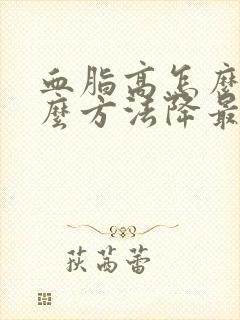 血脂高怎麼
麼方法降最
荻茜蕾